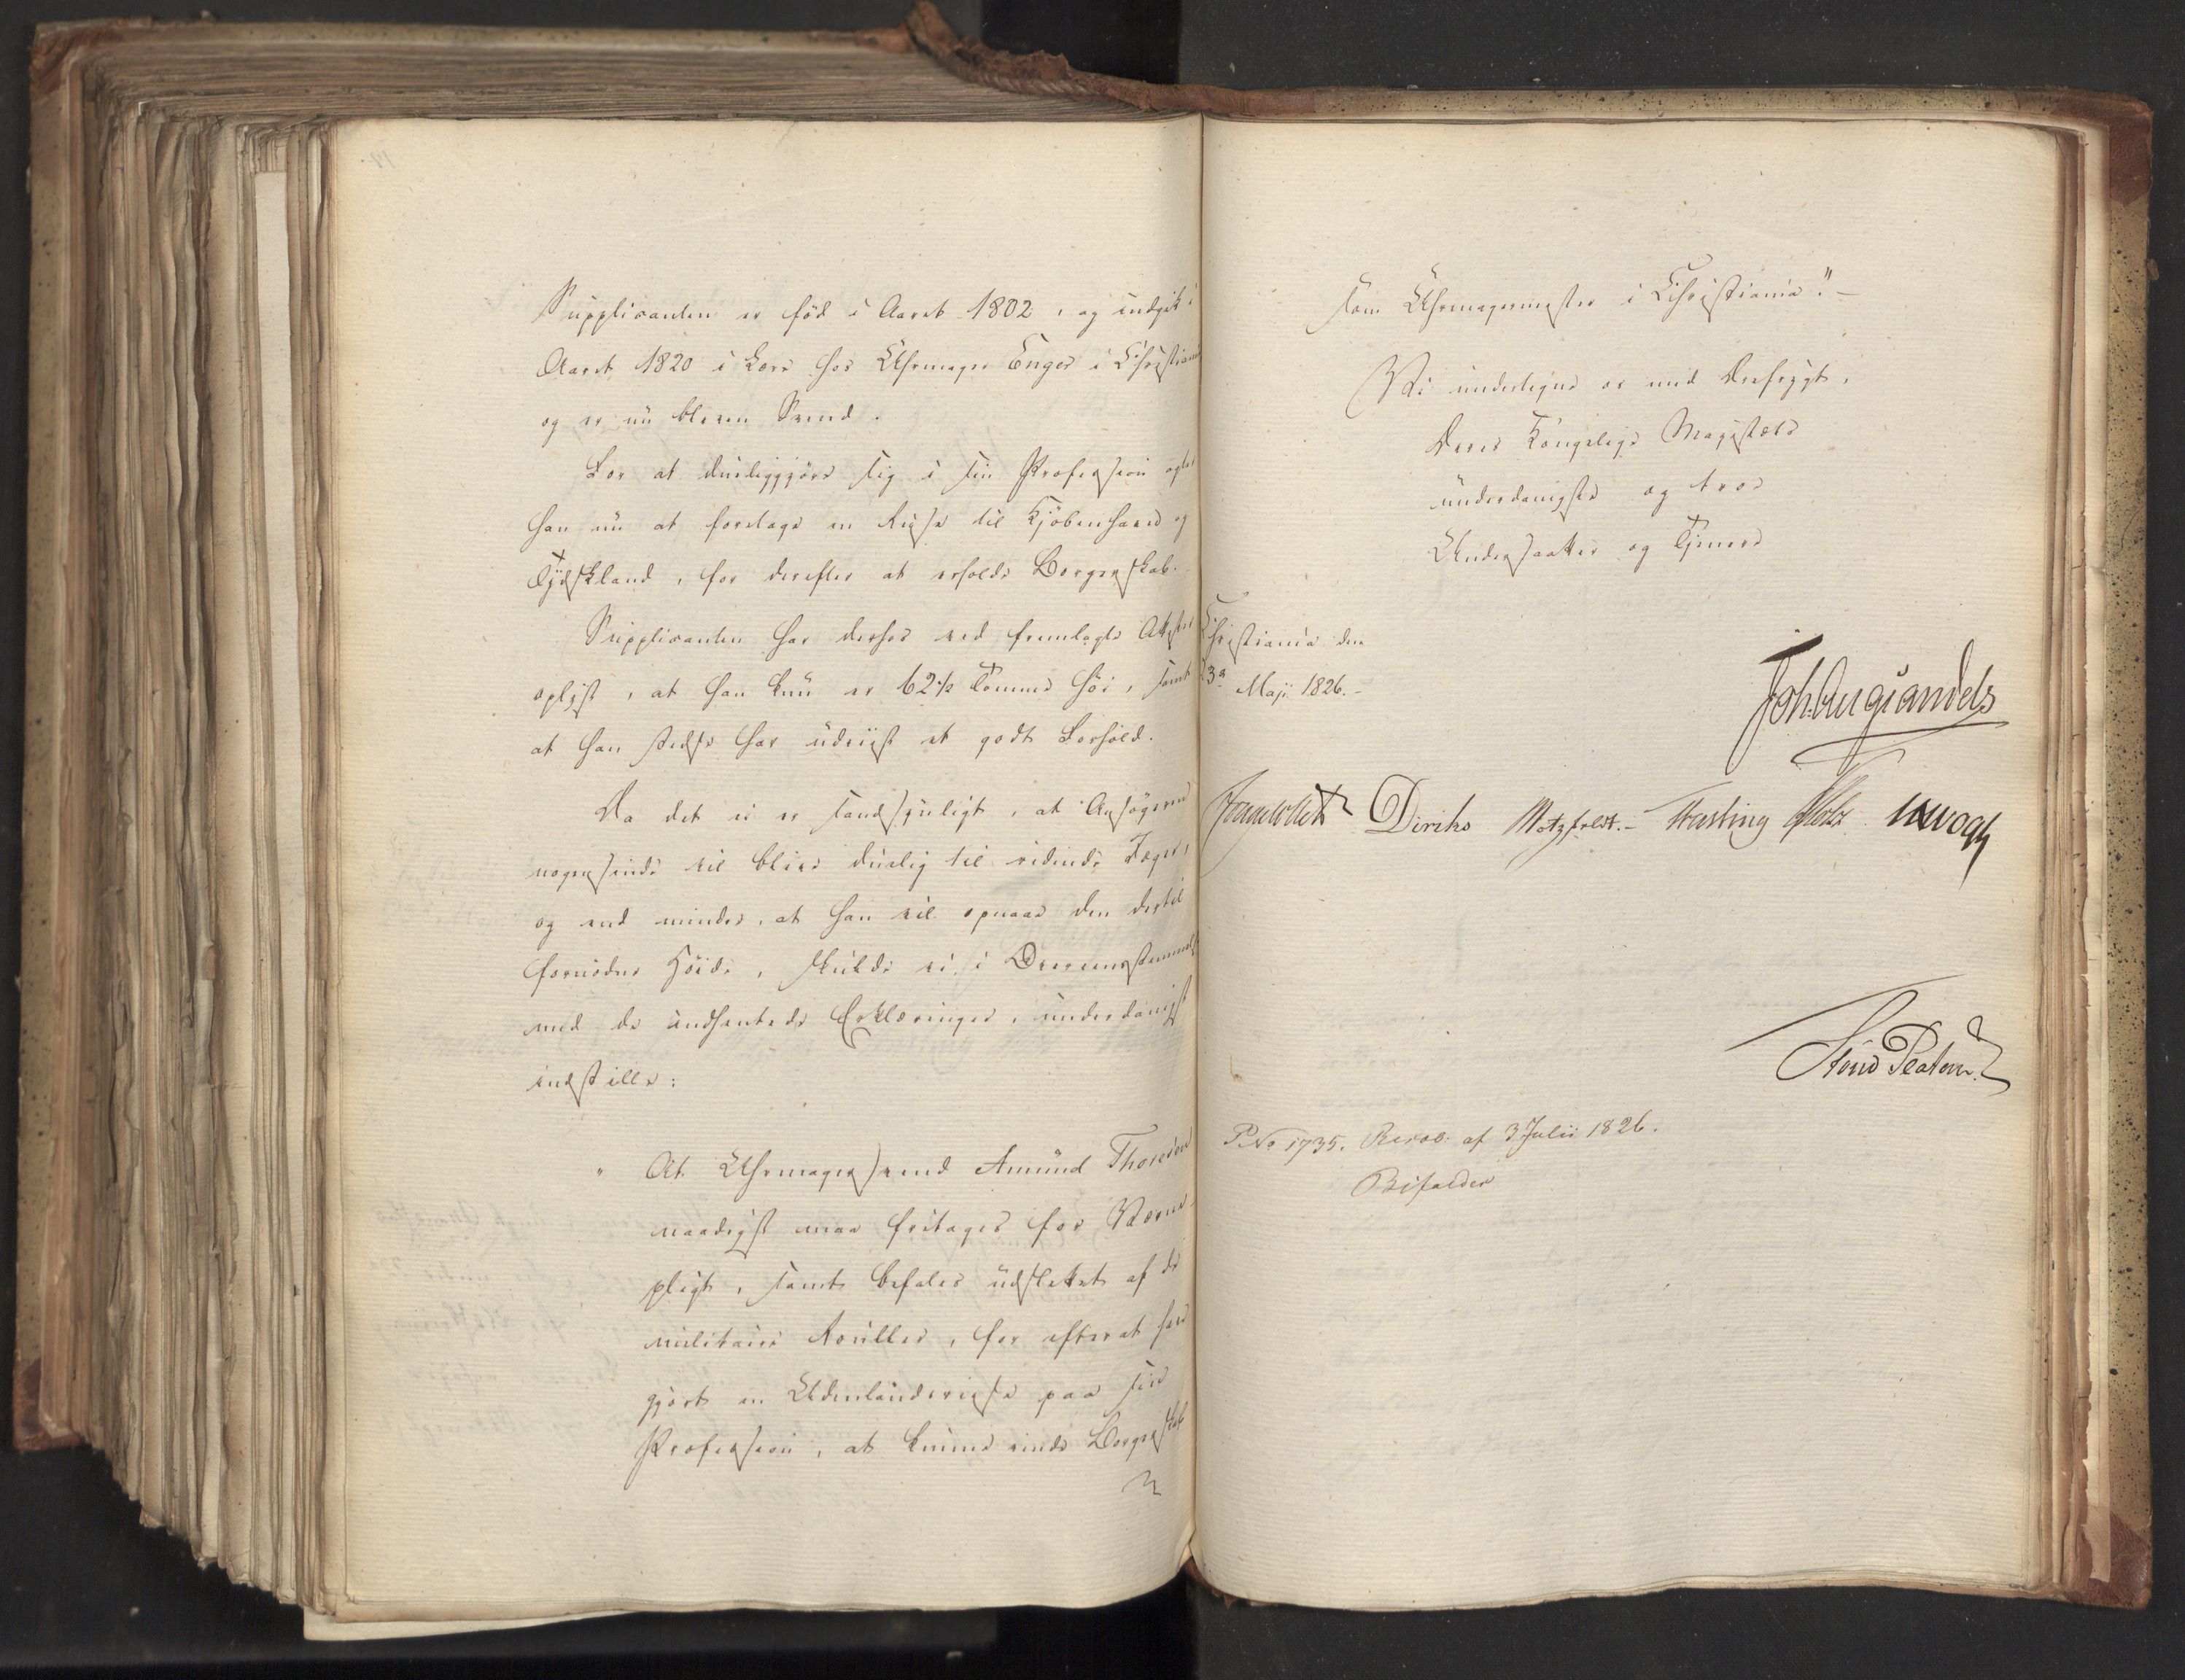 Supplicanten er föd i Aaret 1802, og indgik i
Aaret 1820 i Lære hos Uhrmager Enger i Christiania
og er nu bleven Svend.
For at dueliggjøre sig i sin Profession agter
han nu at foretage en Reise til Kjöbenhavn og
Tydskland, for derefter at erholde Borgerskab.
Supplicanten har derhos ved fremlagte Attester
oplyst, at han kun er 62½ Tomme höi, samt
at han stedse har udviist et godt Forhold.
Da det ei er sandsynligt, at Ansögeren
nogensinde vil blive duelig til ridende Jæger,
og end mindre, at han vil opnaae den dertil
fornödne Höide, skulde vi, i Overeensstemmelse
med de indhentede Erklæringer, underdanigst
indstille:
" At Uhrmagersvend Amund Thoresen
naadigst maa fritages for Værne-
pligt, samt befales udslettet af de
militaire Rouller, for efterat have
gjort en Udenlandsreise paa sin
Profession, at kunne vinde Borgerskab
som Uhrmagermester i Christiania". –
Vi undertegne os med Ærefrygt,
Deres Kongelige Majestæts
underdanigste og troe
Undersaatter og Tjenere
Christiania den
23de Maji 1826. –
Joh. Aug. Sandels
Jonas Collett Diriks Motzfeldt. – Fasting Holst JHVogt
P. No 1735. Resol. af 3 Julii 1826.
Bifaldes